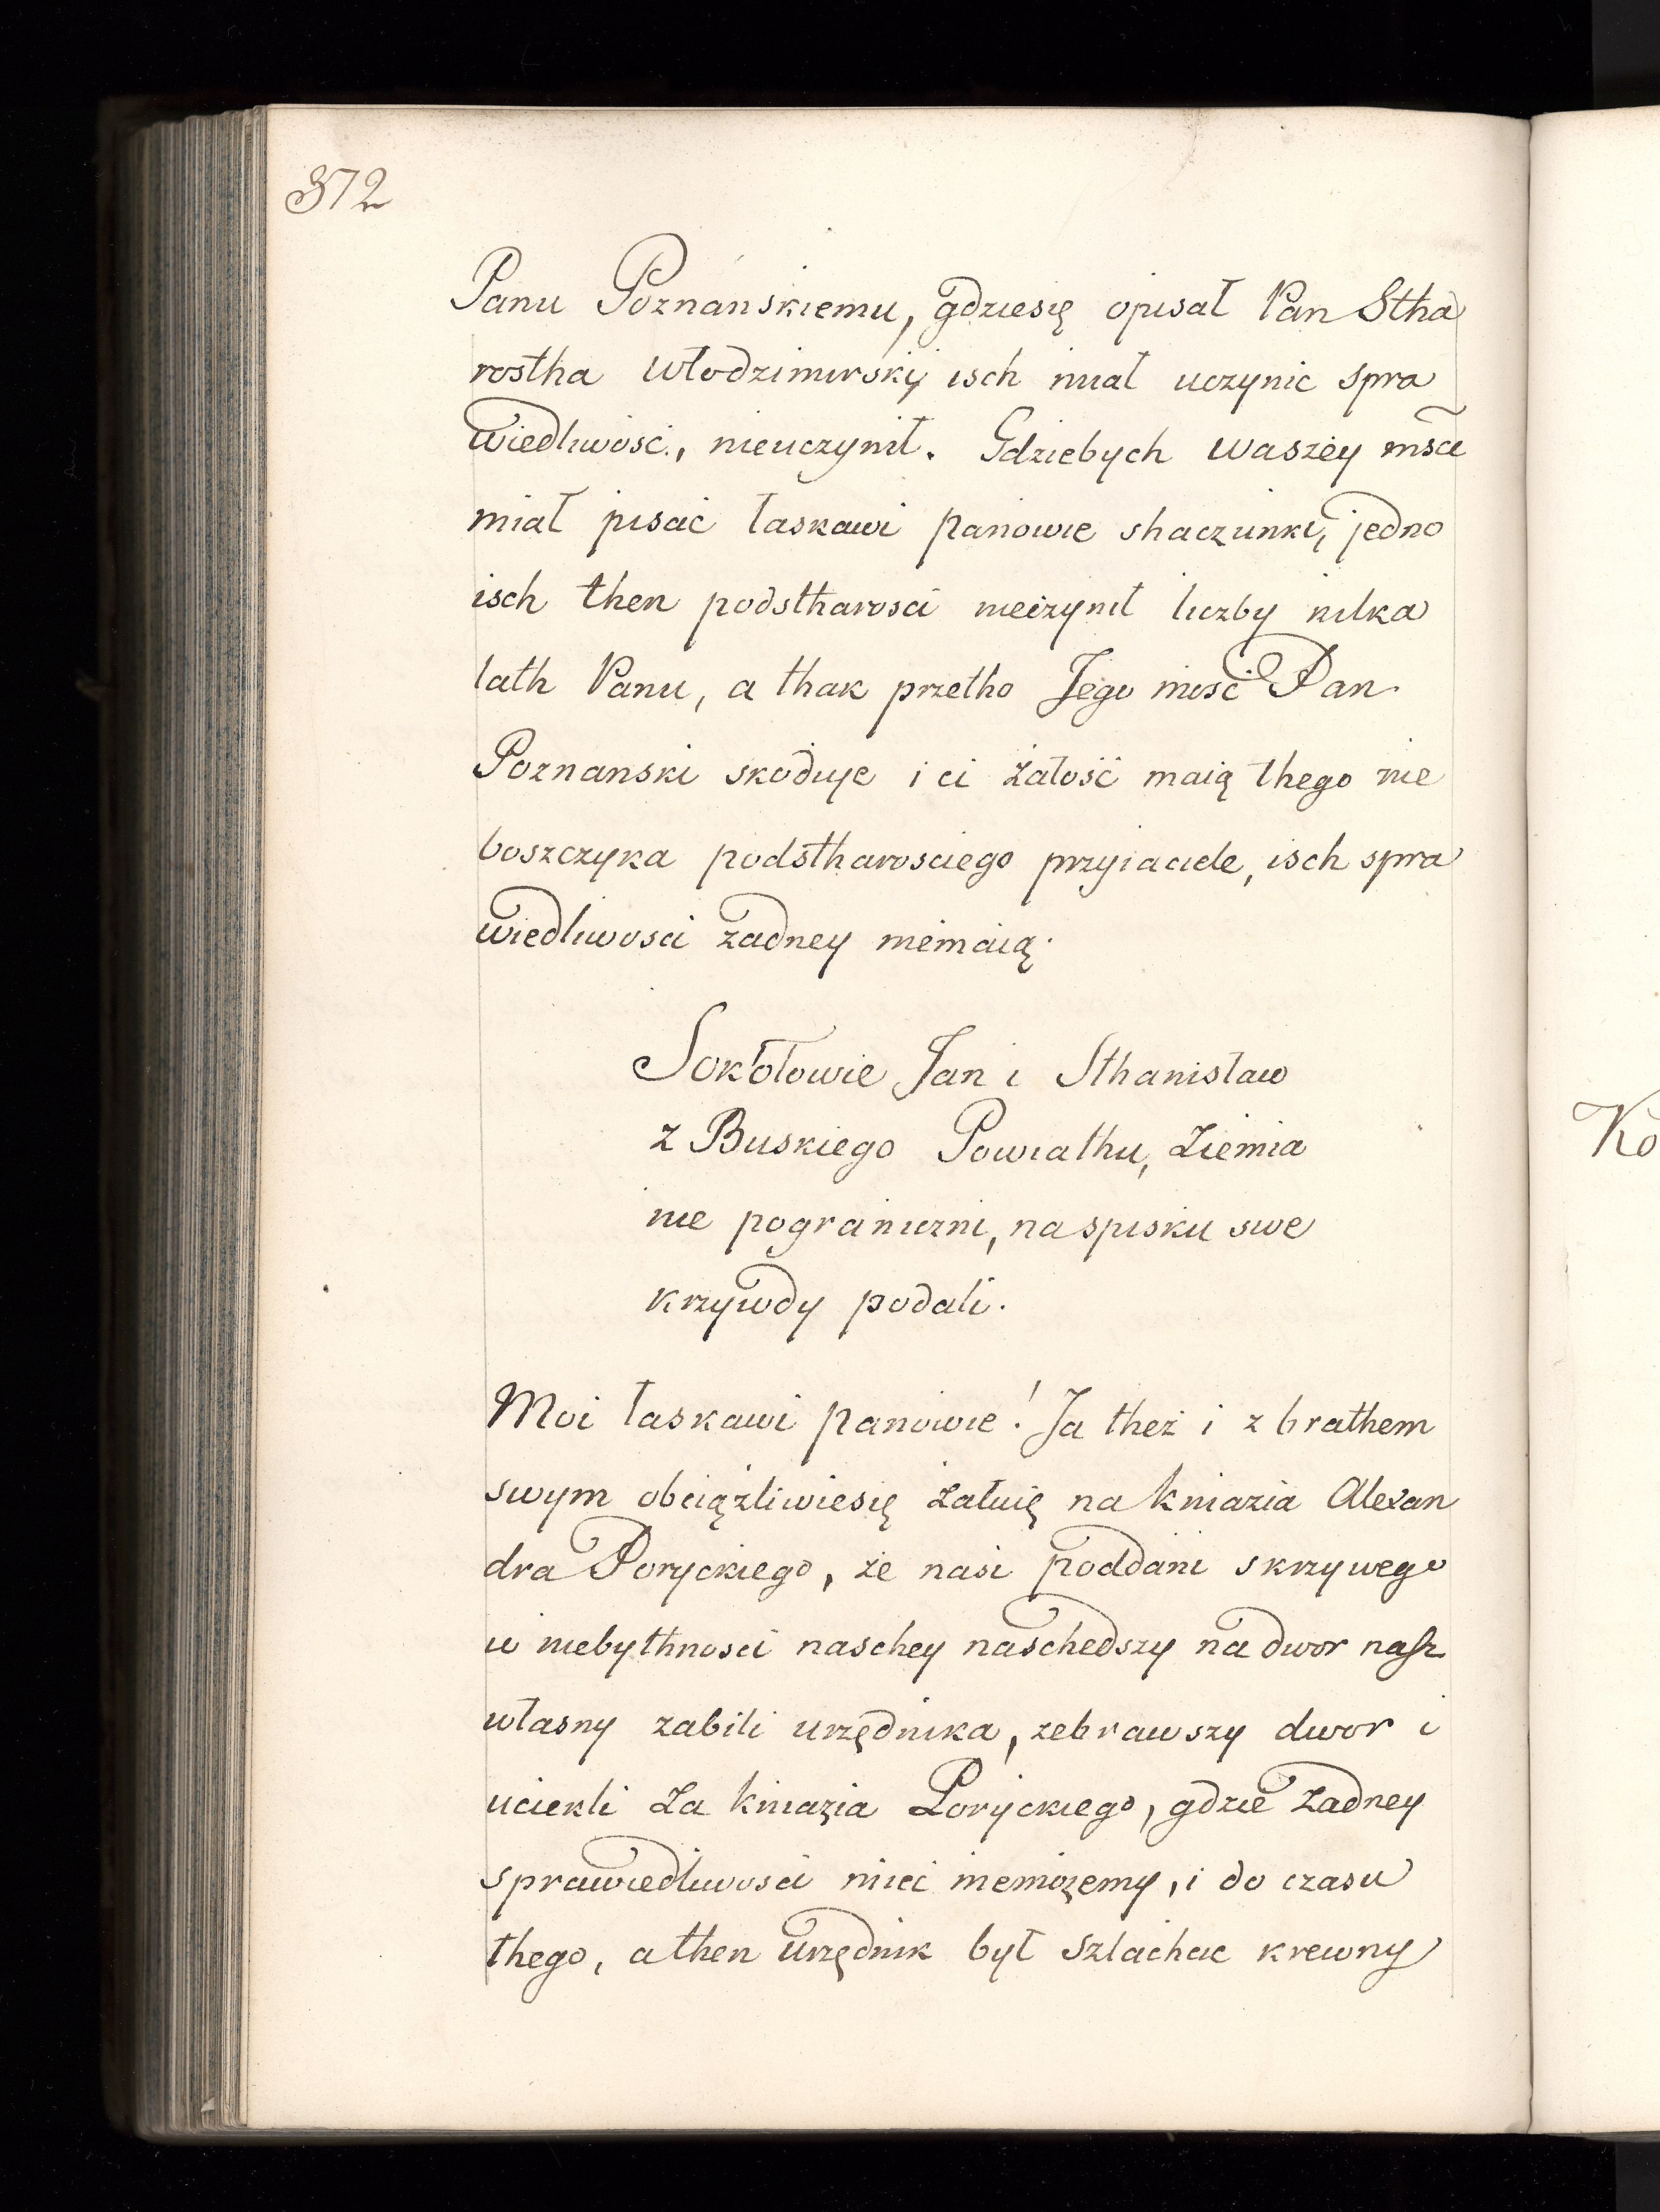 372
Panu Poznańskiemu, gdziesię opisał Pan Stha
rostha Włodzimirskij isch miał uczynic spra
wiedliwość, nieuczynił. Gdziebych waszey mścί
miał pisać łaskawi panowie shaczunki, jedno
isch then podstharosci nieczynił liczby kilka
lath Panu, a thak przetho Jego mość Pan
Poznanski skoduje i ci żałość maią thego nie
boszczyka podstharosciego przyiaciele, isch spra
wiedliwosci żadney niemaią.
Sokołowie Jan i Sthanisław
z Buskiego Powiathu, Ziemia
nie pograniczni, na spisku swe
krzywdy podali.
Moi łaskawi panowie! Ja theż i z brathem
swym obciążliwiesię żałuię na kniazia Alexan
dra Poryckiego, że nasi poddani skrzywego
w niebythnosci naschey naschedszy na dwor nasz
własny zabili urzędnika, zebrawszy dwor i
uciekli za kniazia Poryckiego, gdzie żadney
sprawiedliwosci mieć niemożemy, i do czasu
thego, a then urzędnik był szlachcic krewny
Ko